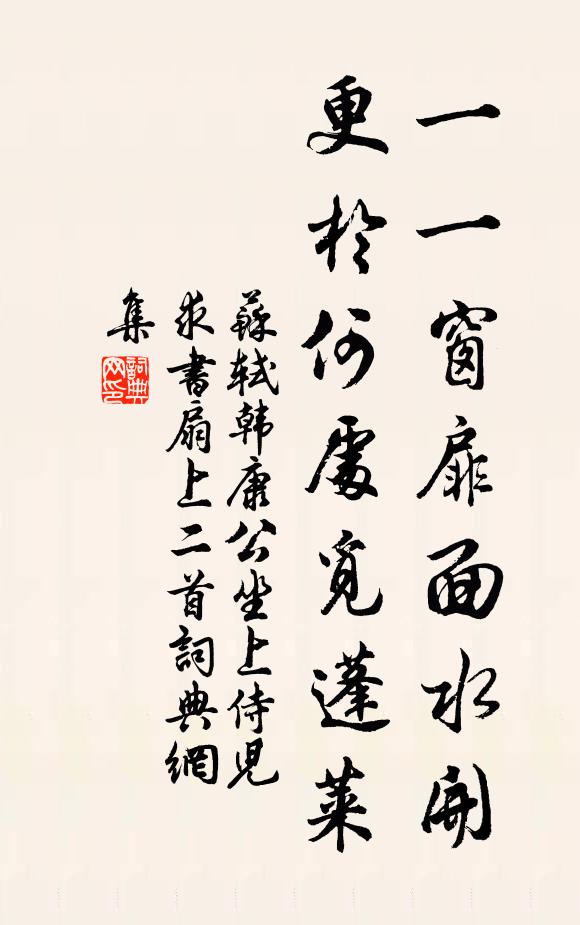 一一窗扉面水開
更於何處覓蓬萊
蘇軾韩康公坐上侍児
求書扇上二首詞典網
集
詞典
网印